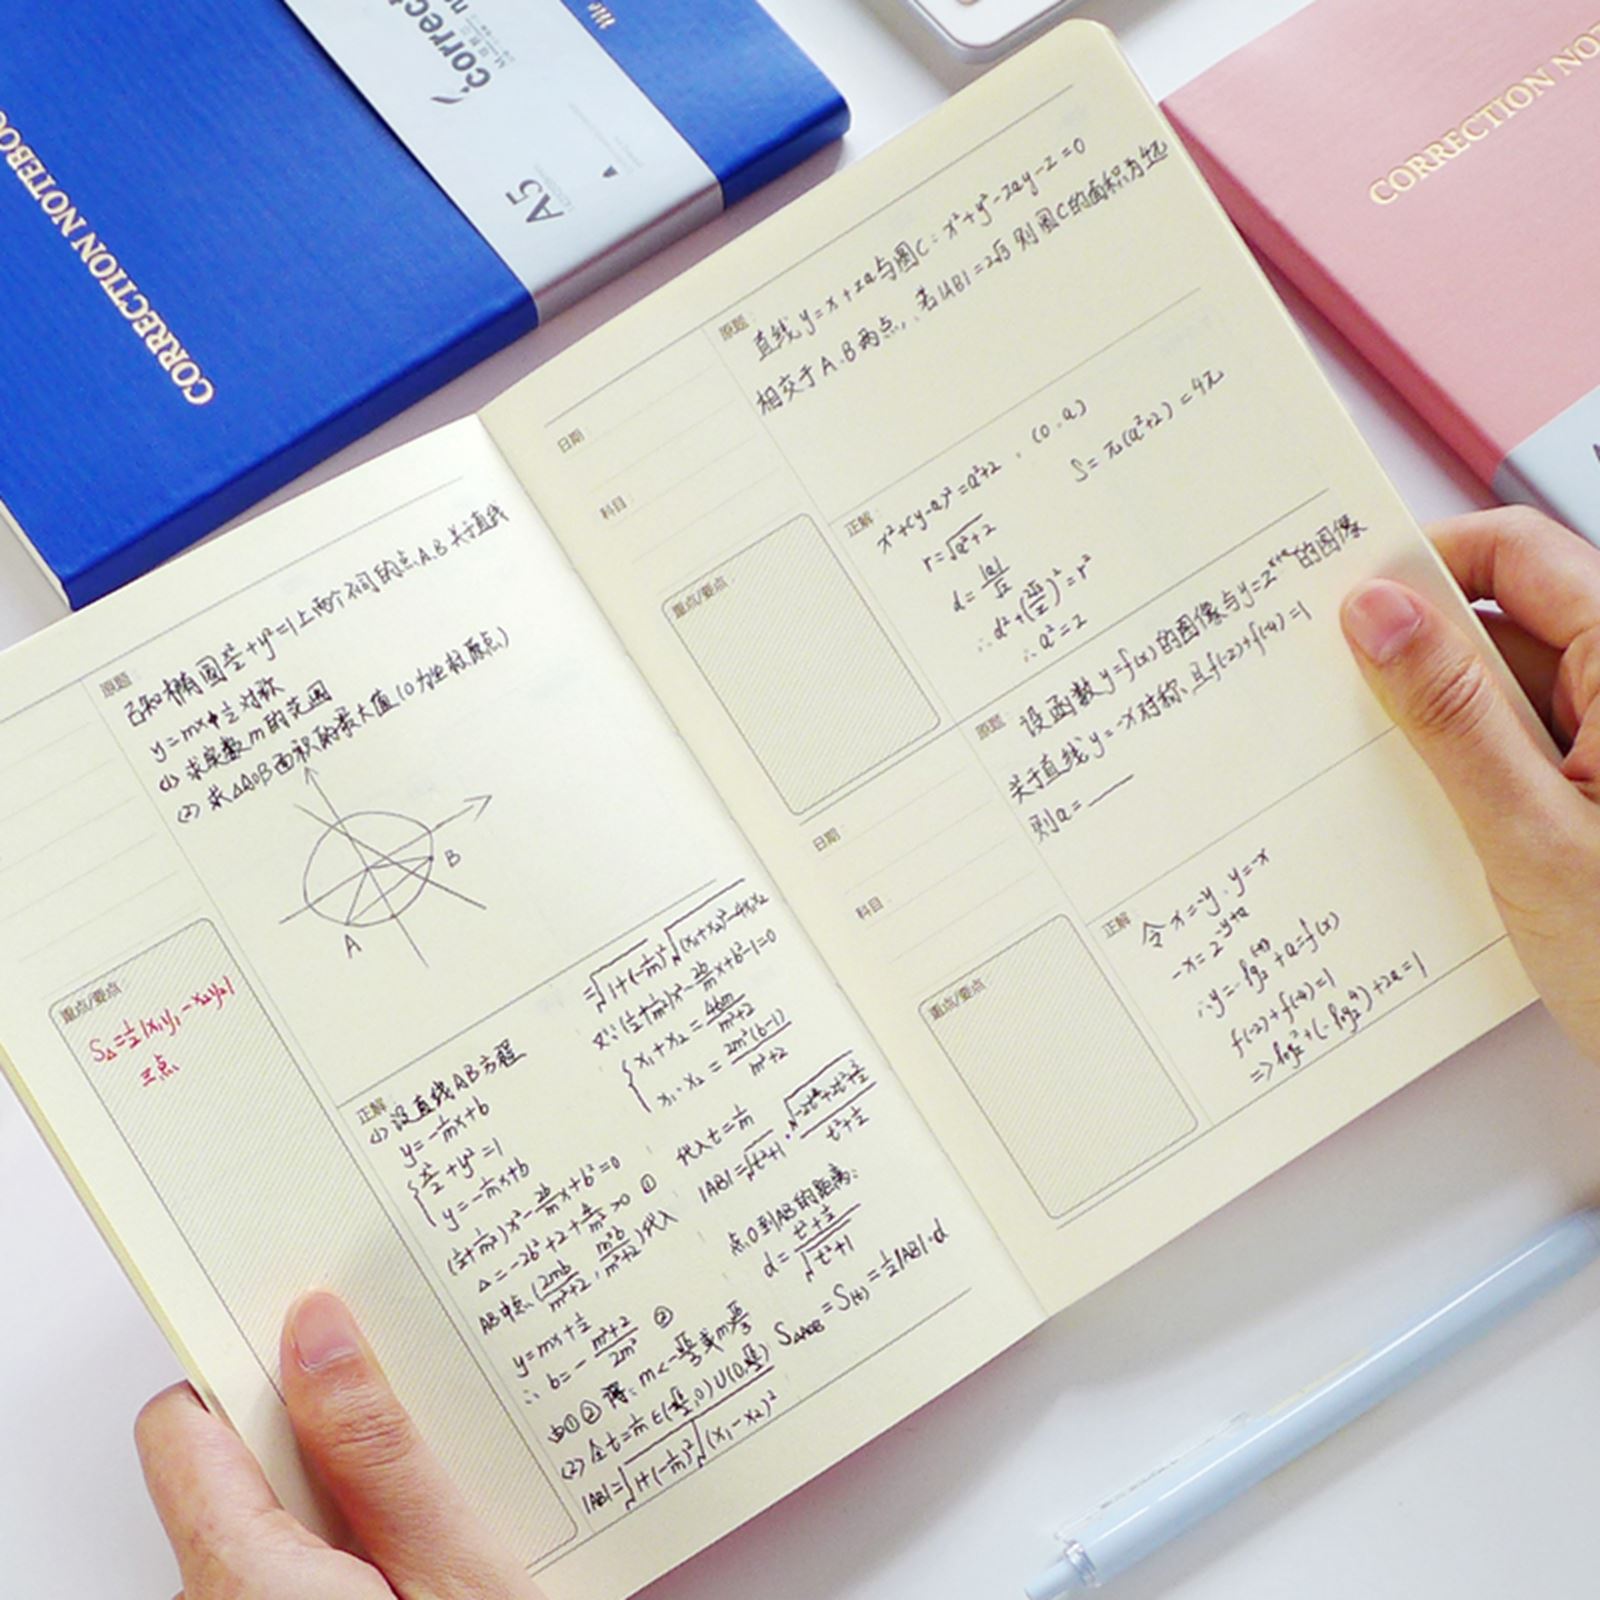 CORRECTION NOTEBOOK
Correct
A5
CORRECTION NOT
原题:
已知椭圆x²/2+y²=1上两个不同的点A,B关于直线
y=mx+1/2对称
(1) 求实数m的范围
(2) 求△AOB面积的最大值(O为坐标原点)
A
B
重点/要点
S△=1/2|x₁y₁-x₂y₂|
三点
正解:
(1) 设直线AB方程
y=-1/m x+b
{x²/2+y²=1
y=-1/m x+b
(1/2+1/m²)x²-2b/m x+b²=0
△=-2b²+2+4/m²>0 ①
AB中点(2mb/m²+2, m²b/m²+2)代入
y=mx+1/2
∴b=-m²+2/2m² ②
由①②得:m<-√6/3或m>√6/3
(2) 令t=1/m∈(-√6/2,0)∪(0,√6/2)
|AB|=√1+(-1/m)²√(x₁-x₂)²
=√1+(-1/m)²√(x₁+x₂)²-4x₁x₂
又∵(1/2+1/m²)x²-2b/m x+b²-1=0
{x₁+x₂=4bm/m²+2
x₁·x₂=2m²(b-1)/m²+2
代入t=1/m
|AB|=√t²+1·√-2t⁴+2t²+3/2/t²+1/2
点O到AB的距离:
d=t²+1/2/√t²+1
S△AOB=S(t)=1/2|AB|·d
日期:
科目:
原题:
直线y=x+2a与圆C:x²+y²-2ay-2=0
相交于A、B两点,若|AB|=2√3 则圆C的面积为4π
重点/要点
正解:
x²+(y-a)²=a²+2, (0,a)
r=√a²+2
S=π(a²+2)=4π
d=|a|/√2
∴d²+(2√3/2)²=r²
∴a²=2
日期:
科目:
原题:
设函数y=f(x)的图像与y=2^(x+a)的图像
关于直线y=-x对称,且f(-2)+f(-4)=1
则a=___
重点/要点
正解
令x=-y,y=-x
-x=2^(-y+a)
∴y=-log₂(-x)+a=f(x)
f(-2)+f(-4)=1
=>-log₂2+(-log₂4)+2a=1